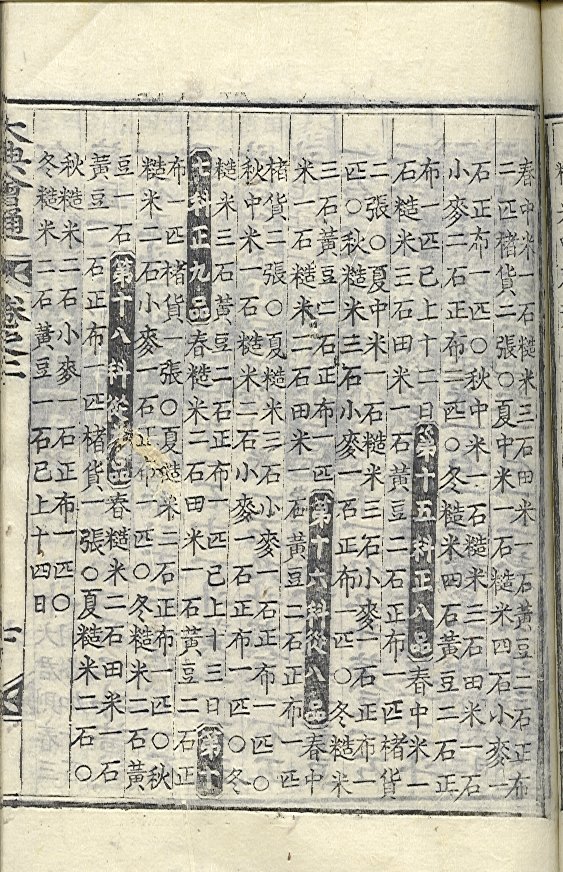 春中米一石糙米三石田米一石黃豆二石正布
二匹楮貨二張○夏中米一石糙米四石小麥一
石正布一匹○秋中米一石糙米三石田米一石
小麥二石正布二匹○冬糙米四石黃豆二石正
布一匹已上十二日第十五科正八品春中米一
石糙米三石田米一石黃豆二石正布一匹楮貨
二張○夏中米一石糙米三石小麥一石正布一
匹○秋糙米三石小麥一石正布一匹○冬糙米
三石黃豆二石正布一匹第十六科從八品春中
米一石糙米二石田米一石黃豆二石正布一匹
楮貨二張○夏糙米三石小麥一石正布一匹○
秋中米一石糙米二石小麥一石正布一匹○冬
糙米三石黃豆二石正布一匹已上十三日第十
七科正九品春糙米二石田米一石黃豆二石正
布一匹楮貨一張○夏糙米二石正布一匹○秋
糙米二石小麥一石正布一匹○冬糙米二石黃
豆一石第十八科從九品春糙米二石田米一石
黃豆一石正布一匹楮貨一張○夏糙米二石○
秋糙米二石小麥一石正布一匹○
冬糙米二石黃豆一石已上十四日
大典會通 卷之二